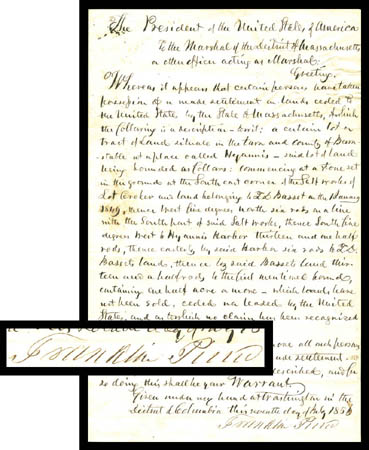 The President of the United States of America
To the Marshal of the District of Massachusetts
or other officer acting as Marshal.
Greeting.
Whereas it appears that certain persons have taken
possession of or made settlement on lands ceded to
the United States by the State of Massachusetts, of which
the following is a description - to wit: a certain lot or
tract of Land situate in the town and county of Barn-
stable at a place called Hyannis - said lot of land
being bounded as follows: commencing at a stone set
in the ground at the South east corner of the Salt works of
Lot Crocker on land belonging to Z.D. Basset on the 1 January
1849, thence West five degrees north six rods in a line
with the South part of said Salt works, thence South five
degrees West to Hyannis Harbor thirteen and one half
rods, thence easterly by said Harbor six rods to Z.D.
Bassets land, thence by said Bassets land thir-
teen and a half rods to the first mentioned bound,
containing one half acre or more - which lands have
not been sold, ceded or leased by the United
States, and on which no claim has been recognized
remove all such persons
made settlement
described, and for
so doing this shall be your Warrant.
Given under my hand at Washington in the
District of Columbia this ninth day of July 185
Franklin Pierce
day of July 18
Franklin Pierce